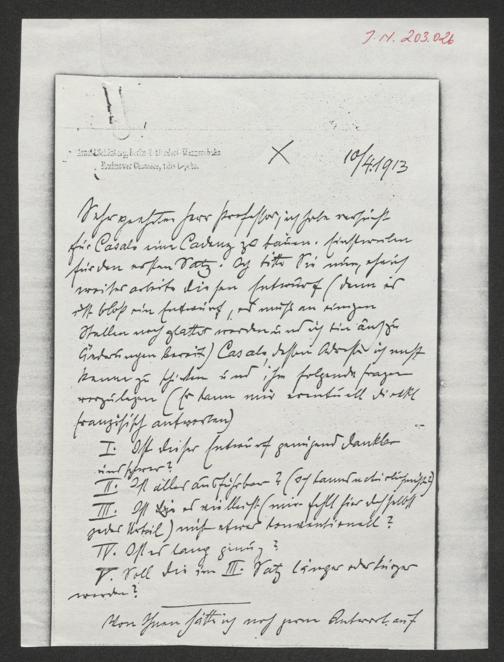 J.N. 203.026
Arnold Schönberg, Berlin-Zehlendorf-Wannseebahn
Machnower Chaussee, Villa Lepcke.
10/4. 1913
Sehr geehrter Herr Professor, ich habe versucht
für Casals eine Cadenz zu bauen. Einstweilen
für den ersten Satz. Ich bitte Sie nun, ehe ich
weiter arbeite diesen Entwurf (denn es
ist bloß ein Entwurf, es muß an einigen
Stellen noch glatter werden und ich bin auch zu
Änderungen bereit) Casals dessen Adresse ich nicht
kenne zu schicken und ihm folgende Fragen
vorzulegen (Er kann mir eventuell direkt
französisch antworten)
I. Ist dieser Entwurf genügend dankbar
und schwer?
II. Ist alles ausführbar? (Ich kanns natürlich nicht?)
III. Ist es vielleicht (mir fehlt hier deshalb
jedes Urteil) nicht etwas konventionell?
IV. Ist es lang genug?
V. Soll die im III. Satz länger oder kürzer
werden?
Von Ihnen hätte ich noch gern Antwort auf